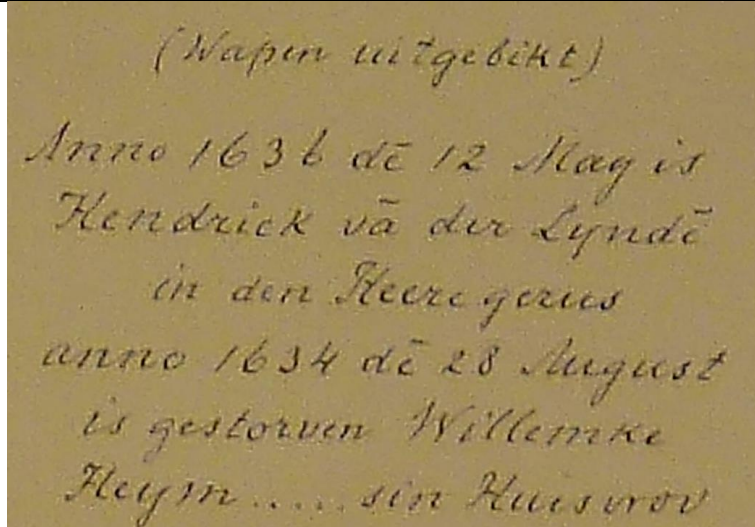 (Wapen uitgebikt)
Anno 1636 dē 12 May is
Hendrick vā der Lyndē
in den Heere gerus
anno 1634 dē 28 August
is gestorven Willemke
Heym..... sin Huisvrov